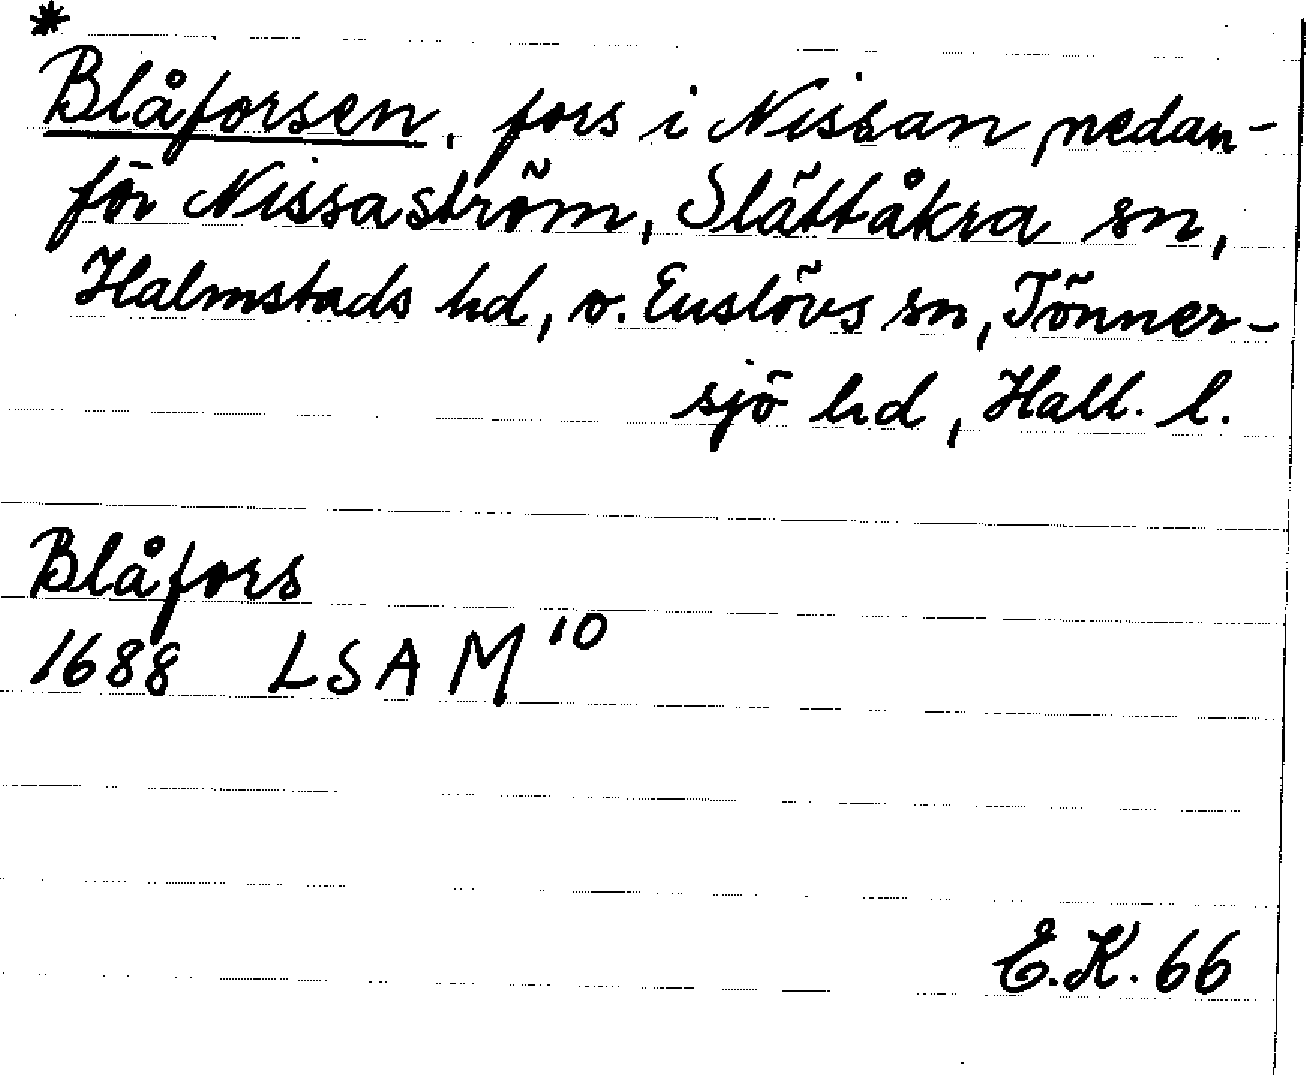 *
Blåforsen, fors i Nissan nedan-
för Nissaström, Slättåkra sn,
Halmstads hd, o. Enslövs sn, Tönner-
sjö hd, Hall. l.
Blåfors
1688 LSA M¹⁰
E.K. 66